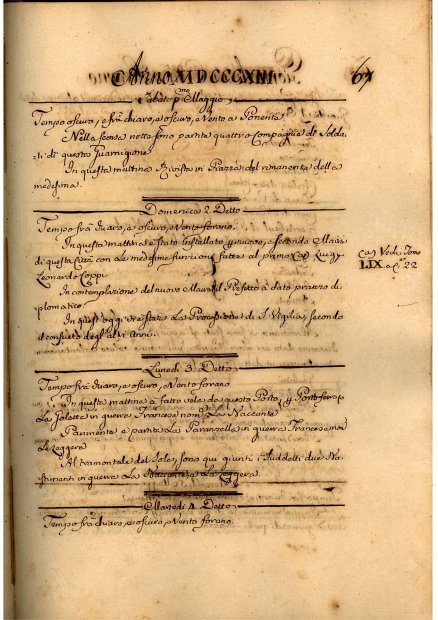 Anno MDCCCXIII
67
Sabato p.mo Maggio
Tempo oscuro, e frà chiaro, e oscuro, Vento a Ponente
Nella scorsa notte sono partite quattro Compagnie di Solda-
ti di questa Guarnigione
In questa mattina Rivista in Piazza del rimanente della
medesima.
Domenica 2. Detto
Tempo frà chiaro, e oscuro, Vento forano.
In questa mattina è stato installato il nuovo, e secondo Maire
di questa Città con le medesime funzioni fatte al primo Luigi
Leonardo Coppi
(a) Vedi Tomo
LIX. a c. 22
In contemplazione del nuovo Maire il Prefetto à dato pranzo di-
plomatico.
In quest'oggi vi è stata La Processione di S. Vigilia, secondo
il consueto degl'altri Anni.
Lunedì 3. Detto
Tempo frà chiaro, e oscuro, Vento forano
In questa mattina à fatto vela da questo Porto p. Portoferrajo
La Goletta in guerra Francese nom.ta La
Parimente è partita La Paranzella in guerra Francese no
La Leggera
Al tramontale del Sole, sono qui giunti i suddetti due Ba-
stimenti in guerra La e La Leggera
Martedì 4. Detto
Tempo frà chiaro, e oscuro, Vento forano.